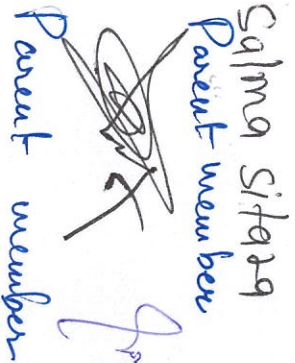 Salma Sitara
Parent member
Parent member